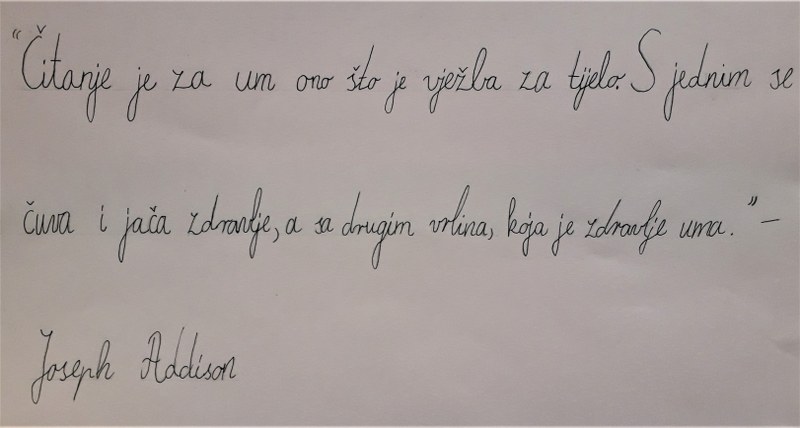 "Čitanje je za um ono što je vježba za tijelo. S jednim se
čuva i jača zdravlje, a sa drugim vrlina, koja je zdravlje uma." –
Joseph Addison